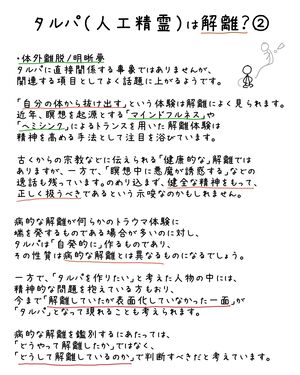 タルパ(人工精霊)は解離?②
・体外離脱/明晰夢
タルパに直接関係する事象ではありませんが、
関連する項目としてよく話題に上がるようです。
「自分の体から抜け出す」という体験は解離によく見られます。
近年、瞑想を起源とする「マインドフルネス」や
「ヘミシンク」によるトランスを用いた解離体験は
精神を高める手法として注目を浴びています。
古くからの宗教などに伝えられる「健康的な」解離では
ありますが、一方で、「瞑想中に悪魔が誘惑する」などの
逸話も残っています。のめり込まず、健全な精神をもって、
正しく扱うべきであるという示唆なのかもしれません。
病的な解離が何らかのトラウマ体験に
端を発するものである場合が多いのに対し、
タルパは「自発的に」作るものであり、
その性質は病的な解離とは異なるものになるでしょう。
一方で、「タルパを作りたい」と考えた人物の中には、
精神的な問題を抱えている方もおり、
今まで「解離していたが表面化していなかった一面」が
「タルパ」となって現れることも考えられます。
病的な解離を鑑別するにあたっては、
「どうやって解離したか」ではなく、
「どうして解離しているのか」で判断すべきだと考えています。